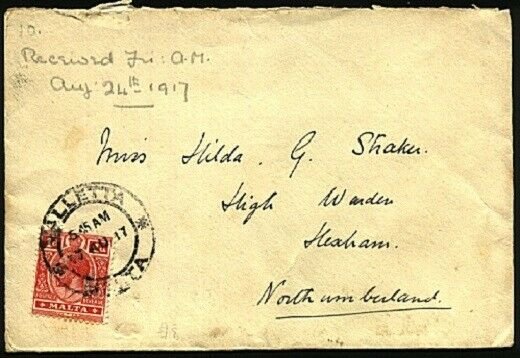 10.
Received Fri: A.M.
Aug: 24th 1917
Miss Hilda. G. Straker.
High Warden
Hexham.
Northumberland.
VALLETTA
5.45 AM
17
MALTA
MALTA